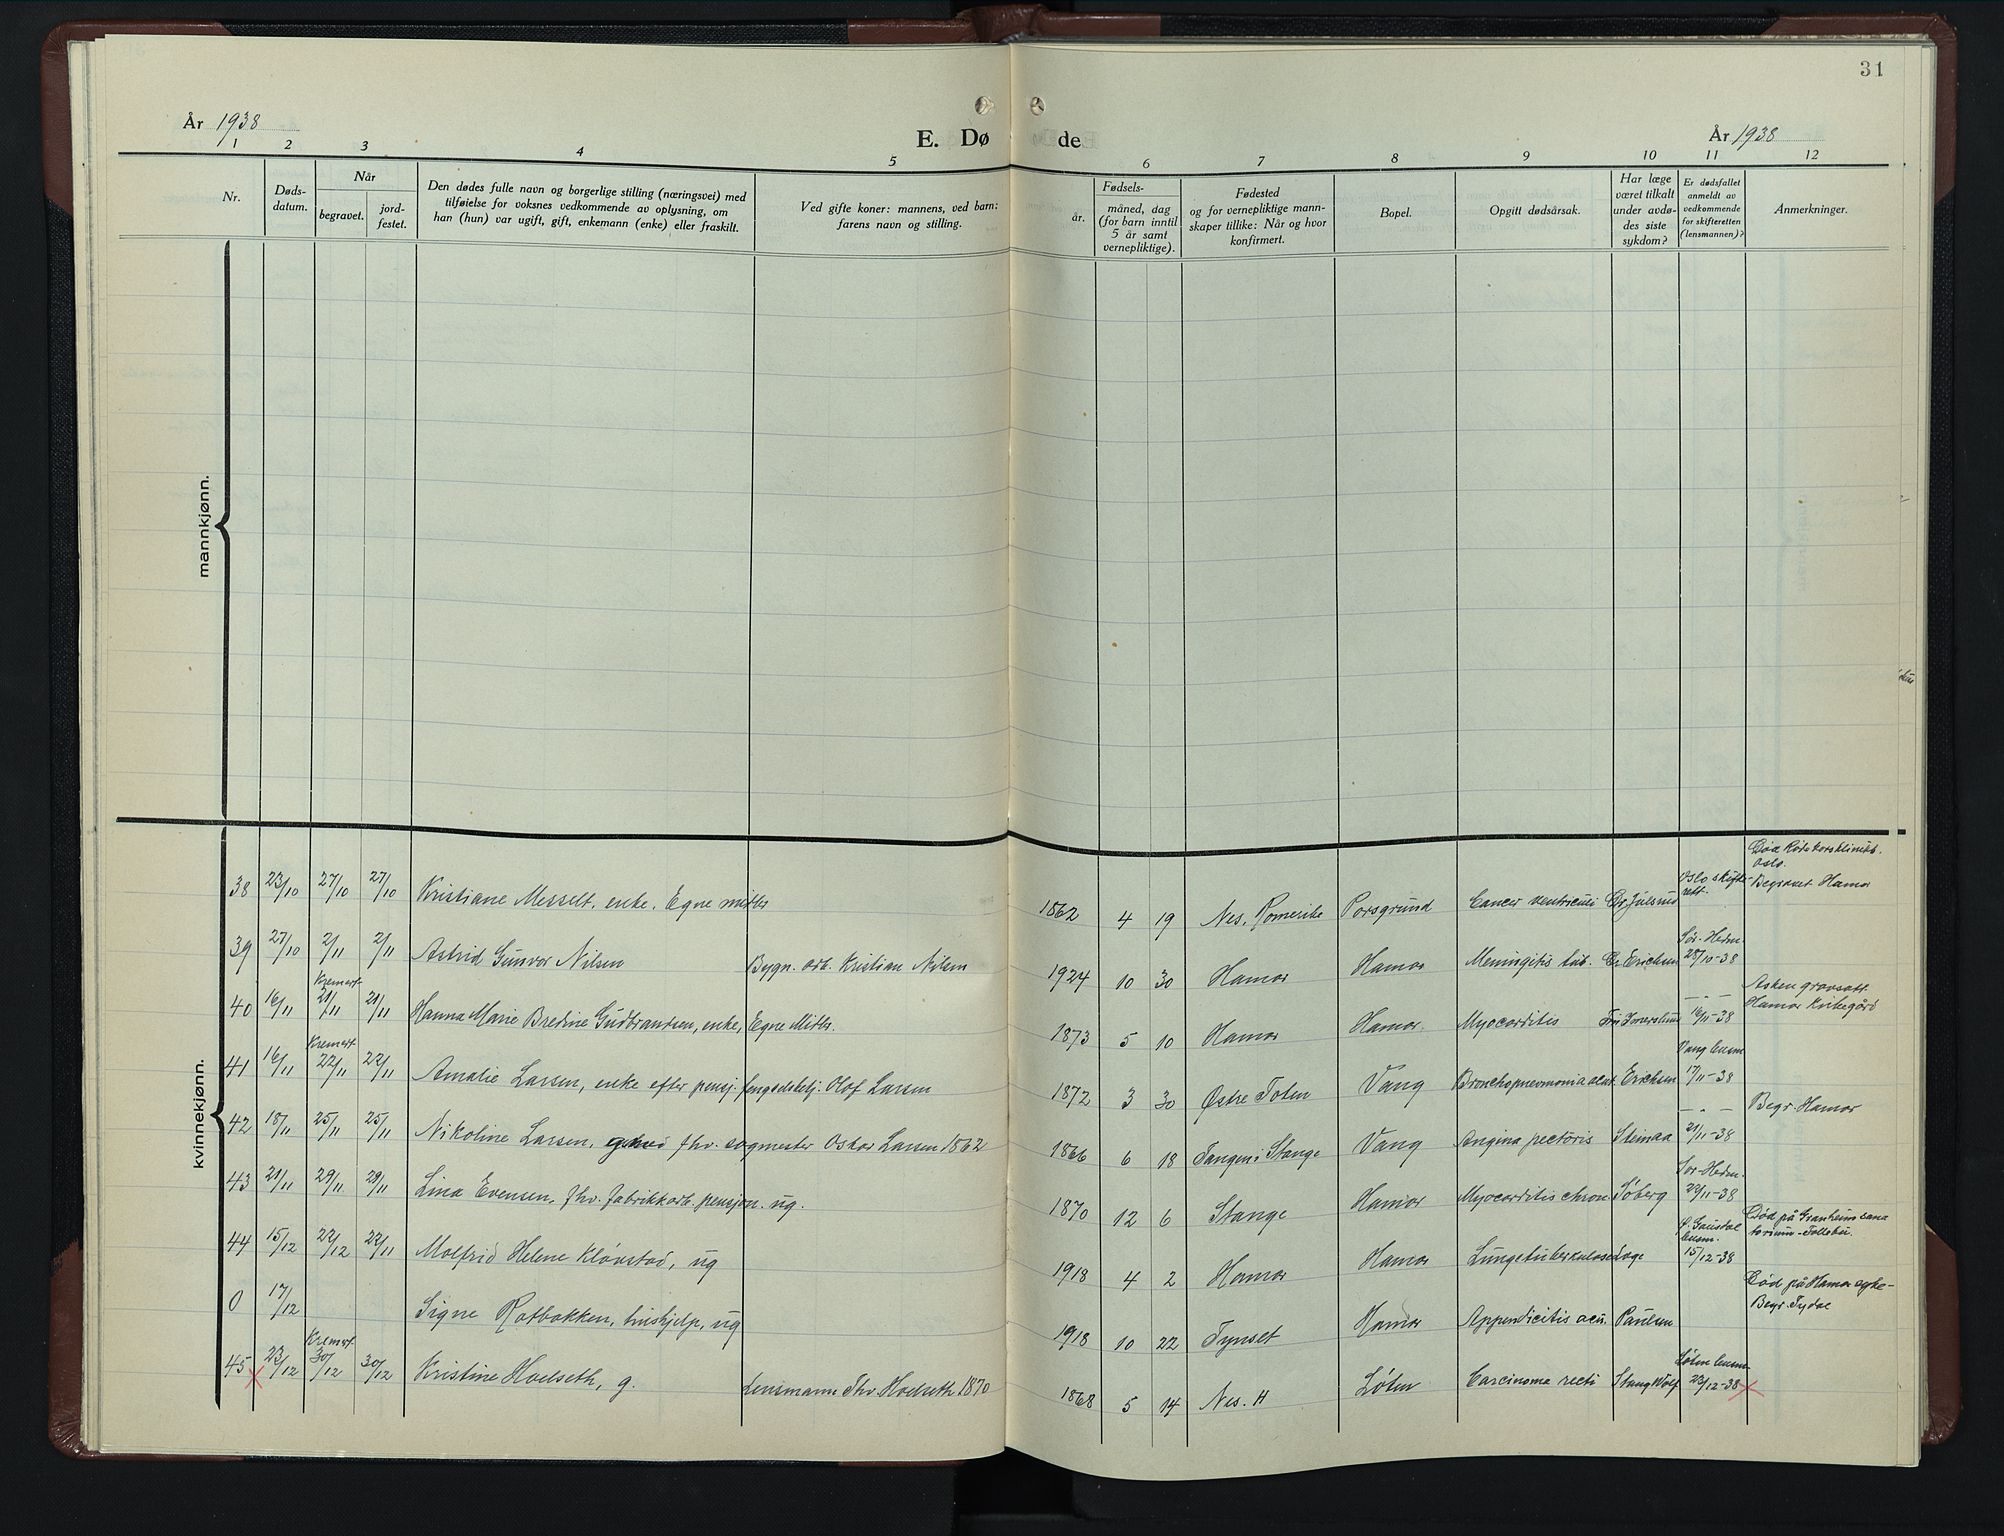 31
År 1938
E. Døde
År 1938
1 2 3 4 5 6 7 8 9 10 11 12
Nr.
Døds-
datum.
Når
begravet.
jord-
festet.
Den dødes fulle navn og borgerlige stilling (næringsvei) med
tilføielse for voksnes vedkommende av oplysning, om
han (hun) var ugift, gift, enkemann (enke) eller fraskilt.
Ved gifte koner: mannens, ved barn:
farens navn og stilling.
Fødsels-
år.
måned, dag
(for barn inntil
5 år samt
vernepliktige).
Fødested
og for vernepliktige mann-
skaper tillike: Når og hvor
konfirmert.
Bopel.
Opgitt dødsårsak.
Har læge
været tilkalt
under avdø-
des siste
sykdom?
Er dødsfallet
anmeldt av
vedkommende
for skifteretten
(lensmannen)?
Anmerkninger.
mannkjønn.
kvinnekjønn.
38 23/10 27/10 27/10 Kristiane Messelt, enke. Egne midler 1862 4 19 Nes, Romerike Porsgrund Cancer ventriculi Dr. Julsrud Oslo skifte-
rett.
Død Røde kors klinikk.
Oslo.
Begravet Hamar
39 27/10 2/11 2/11 Astrid Gunvor Nilsen Bygn. arb. Kristian Nilsen 1924 10 30 Hamar Hamar Meningitis tub. Dr. Erichsen Sør-Hedm.
28/10-38
40 16/11 Kremert
21/11 21/11 Hanna Marie Bredine Gudbrandsen, enke, Egne Midler. 1873 5 10 Hamar Hamar. Myocarditis — " —
16/11-38
Asken gravsatt
Hamar kirkegård
41 16/11 Kremert
22/11 22/11 Amalie Larsen, enke efter pensj. fengselsbetj. Olof Larsen 1872 3 30 Østre Toten Vang Bronchopneumonia acut. Erichsen Vang lensm
17/11-38
42 18/11 25/11 25/11 Nikoline Larsen, fhv. sagmester Oskar Larsen 1862 1866 6 18 Tangen i Stange Vang Angina pectoris Steinaa — " —
21/11-38
Begr. Hamar
43 21/11 29/11 29/11 Lina Evensen, fhv. fabrikkarb. pensjon. ug. 1870 12 6 Stange Hamar Myocarditis chron. Søberg Sør-Hedm.
22/11-38
44 15/12 22/12 22/11 Molfrid Helene Kløvstad, ug 1918 4 2 Hamar Hamar Lungetuberkulose Loge Ø. Gausdal
lensm.
15/12-38
Død på Granheim sana
torium - Follebu.
0 17/12 Signe Rotbakken, hushjelp, ug 1918 10 22 Tynset Hamar Appendicitis acu. Paulsen
Død på Hamar syke-
Begr. Tydal
45 23/12 Kremert
30/12 30/12 Kristine Hoelseth, g. Lensmann Thv. Hoelseth 1870 1868 5 14 Nes. H Løten Carcinoma recti Stang Wolf Løten lensm.
23/12-38